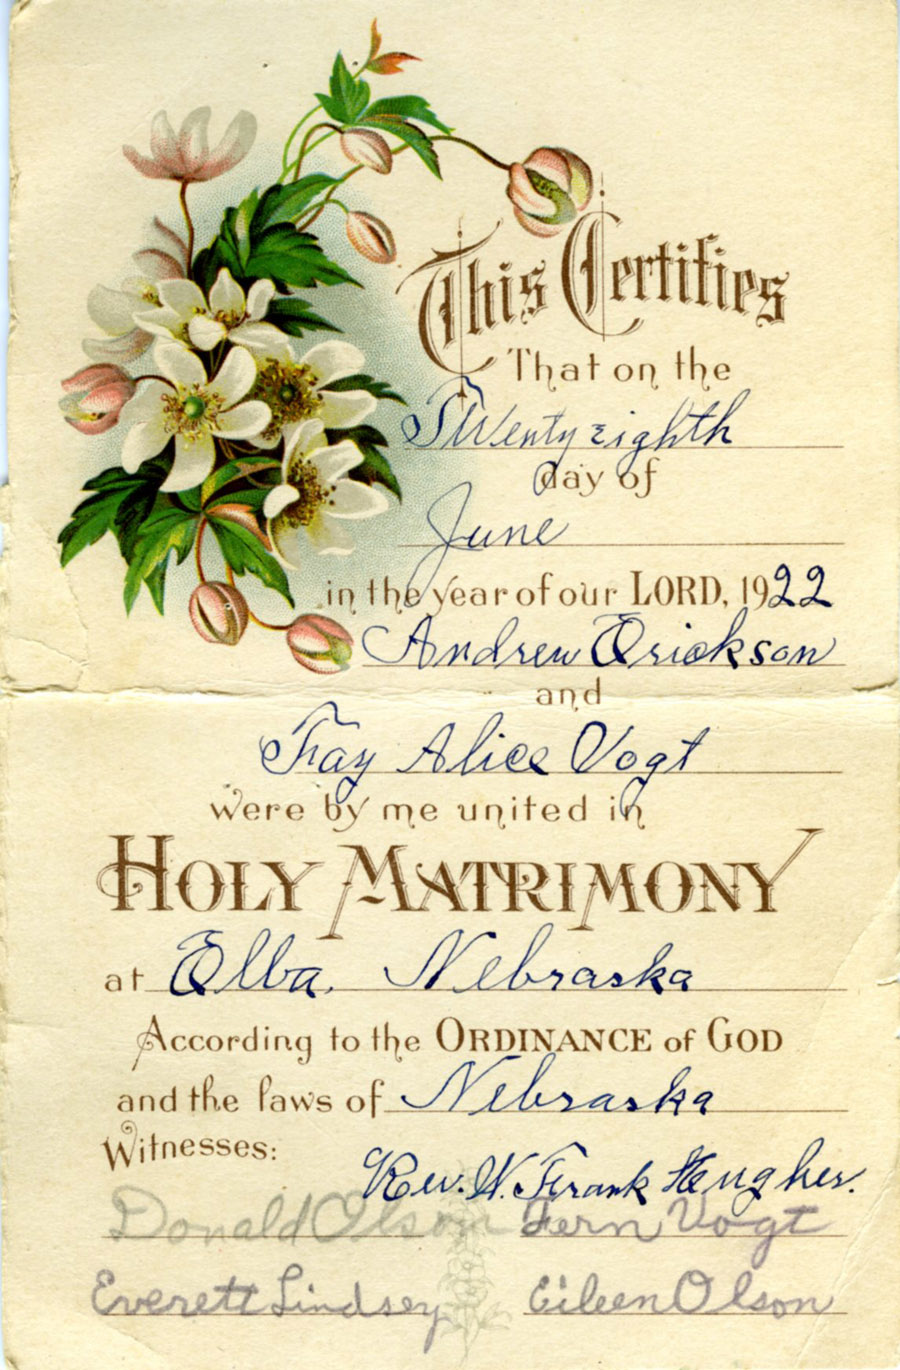 This Certifies
That on the
Twenty Eighth
day of
June
in the year of our LORD, 1922
Andrew Erickson
and
Fay Alice Vogt
were by me united in
HOLY MATRIMONY
at Elba, Nebraska
According to the ORDINANCE of GOD
and the laws of Nebraska
Witnesses:
Rev. W. Frank Hughes.
Donald Olson Fern Vogt
Everett Lindsey Eileen Olson